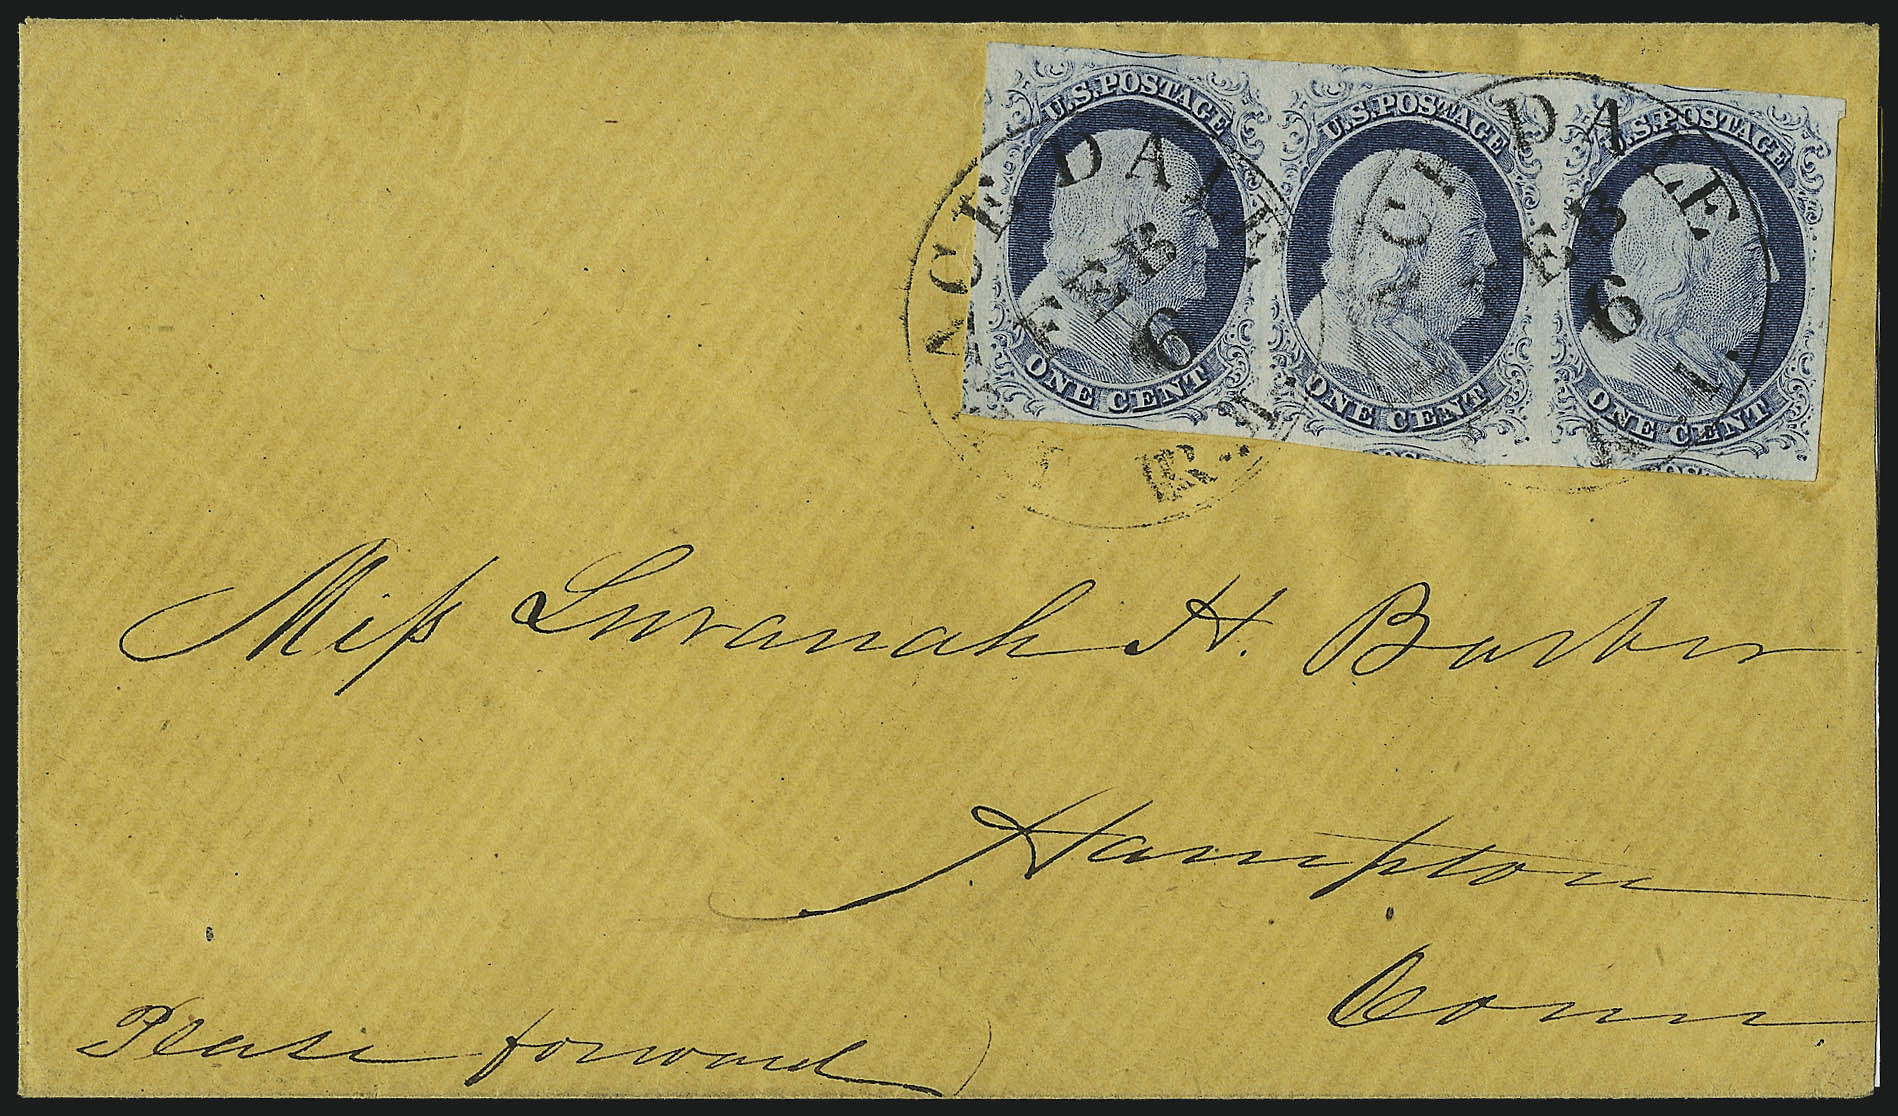 U.S.POSTAGE U.S.POSTAGE U.S.POSTAGE
ONE CENT ONE CENT ONE CENT
ACE DALE
FEB
6
R.I.
DALE
FEB
6
Miſs Luranah H. Barber
Hampton
Conn
Please forward